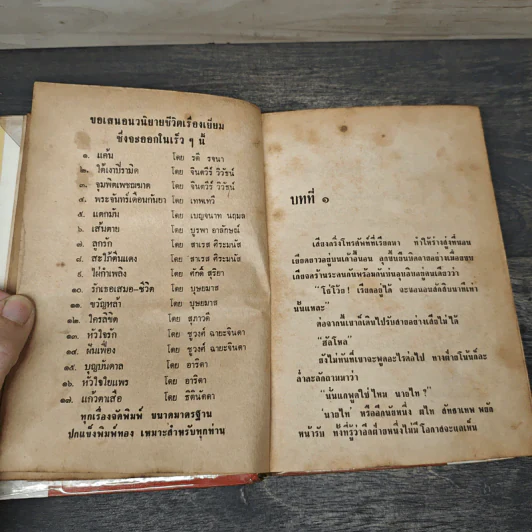 ขอเสนอนวนิยายชีวิตเรื่องเยี่ยม
ซึ่งจะออกในเร็ว ๆ นี้
๑. แค้น โดย รตี รจนา
๒. ใต้เงาปีรามิด โดย จินตวีร์ วิวัธน์
๓. จุมพิตเพชฌฆาต โดย จินตวีร์ วิวัธน์
๔. พระจันทร์เดือนกันยา โดย เทพเทวี
๕. แตกมัน โดย เบญจนาท นฤมล
๖. เส้นตาย โดย บูรพา อาลักษณ์
๗. ลูกรัก โดย สาเรส ศิระมนัส
๘. สะใภ้ตีนแดง โดย สาเรส ศิระมนัส
๙. ไฝกำเพลิง โดย ศักดิ์ สุริยา
๑๐. รักเธอเสมอ-ชีวิต โดย บุษยมาส
๑๑. ขวัญหล้า โดย บุษยมาส
๑๒. ใครลิขิต โดย สุภาวดี
๑๓. หัวใจรัก โดย ชูวงศ์ ฉายะจินดา
๑๔. ผันเฟื่อง โดย ชูวงศ์ ฉายะจินดา
๑๕. บุญบันดาล โดย อาริตา
๑๖. หัวใจโยแพร โดย อาริตา
๑๗. แก้วตาเสือ โดย ธิตินัดดา
ทุกเรื่องจัดพิมพ์ ขนาดมาตรฐาน
ปกแข็งพิมพ์ทอง เหมาะสำหรับทุกท่าน
บทที่ ๑
เสียงกริ่งโทรศัพท์ที่เรียกมา ทำให้ร่างสูงที่นอน
เอียดยาวอยู่บนเตาผิงนอน ลุกขึ้นยืนบิดกายอย่างเมื่อยขบ
"โอ๋โว้ย! เรียกอยู่ได้ จะนอนสักสิบนาทีเท่า
นั้นแหละ"
ต่อจากนั้นเขาก็เดินไปรับสายอย่างเสียไม่ได้
"ฮัลโหล"
ยังไม่ทันที่เขาจะพูดอะไรต่อไป ทางฝ่ายโน้นก็ละ
ล่ำละลักถามมาว่า
"นั่นแกพูดใช่ไหม นายไท?"
'นายไท' หรืออีกนัยหนึ่ง ผไท ลัทธาเทพ พยัก
หน้ารับ ทั้งที่รู้ว่าอีกฝ่ายหนึ่งไม่มีโอกาสจะแลเห็น